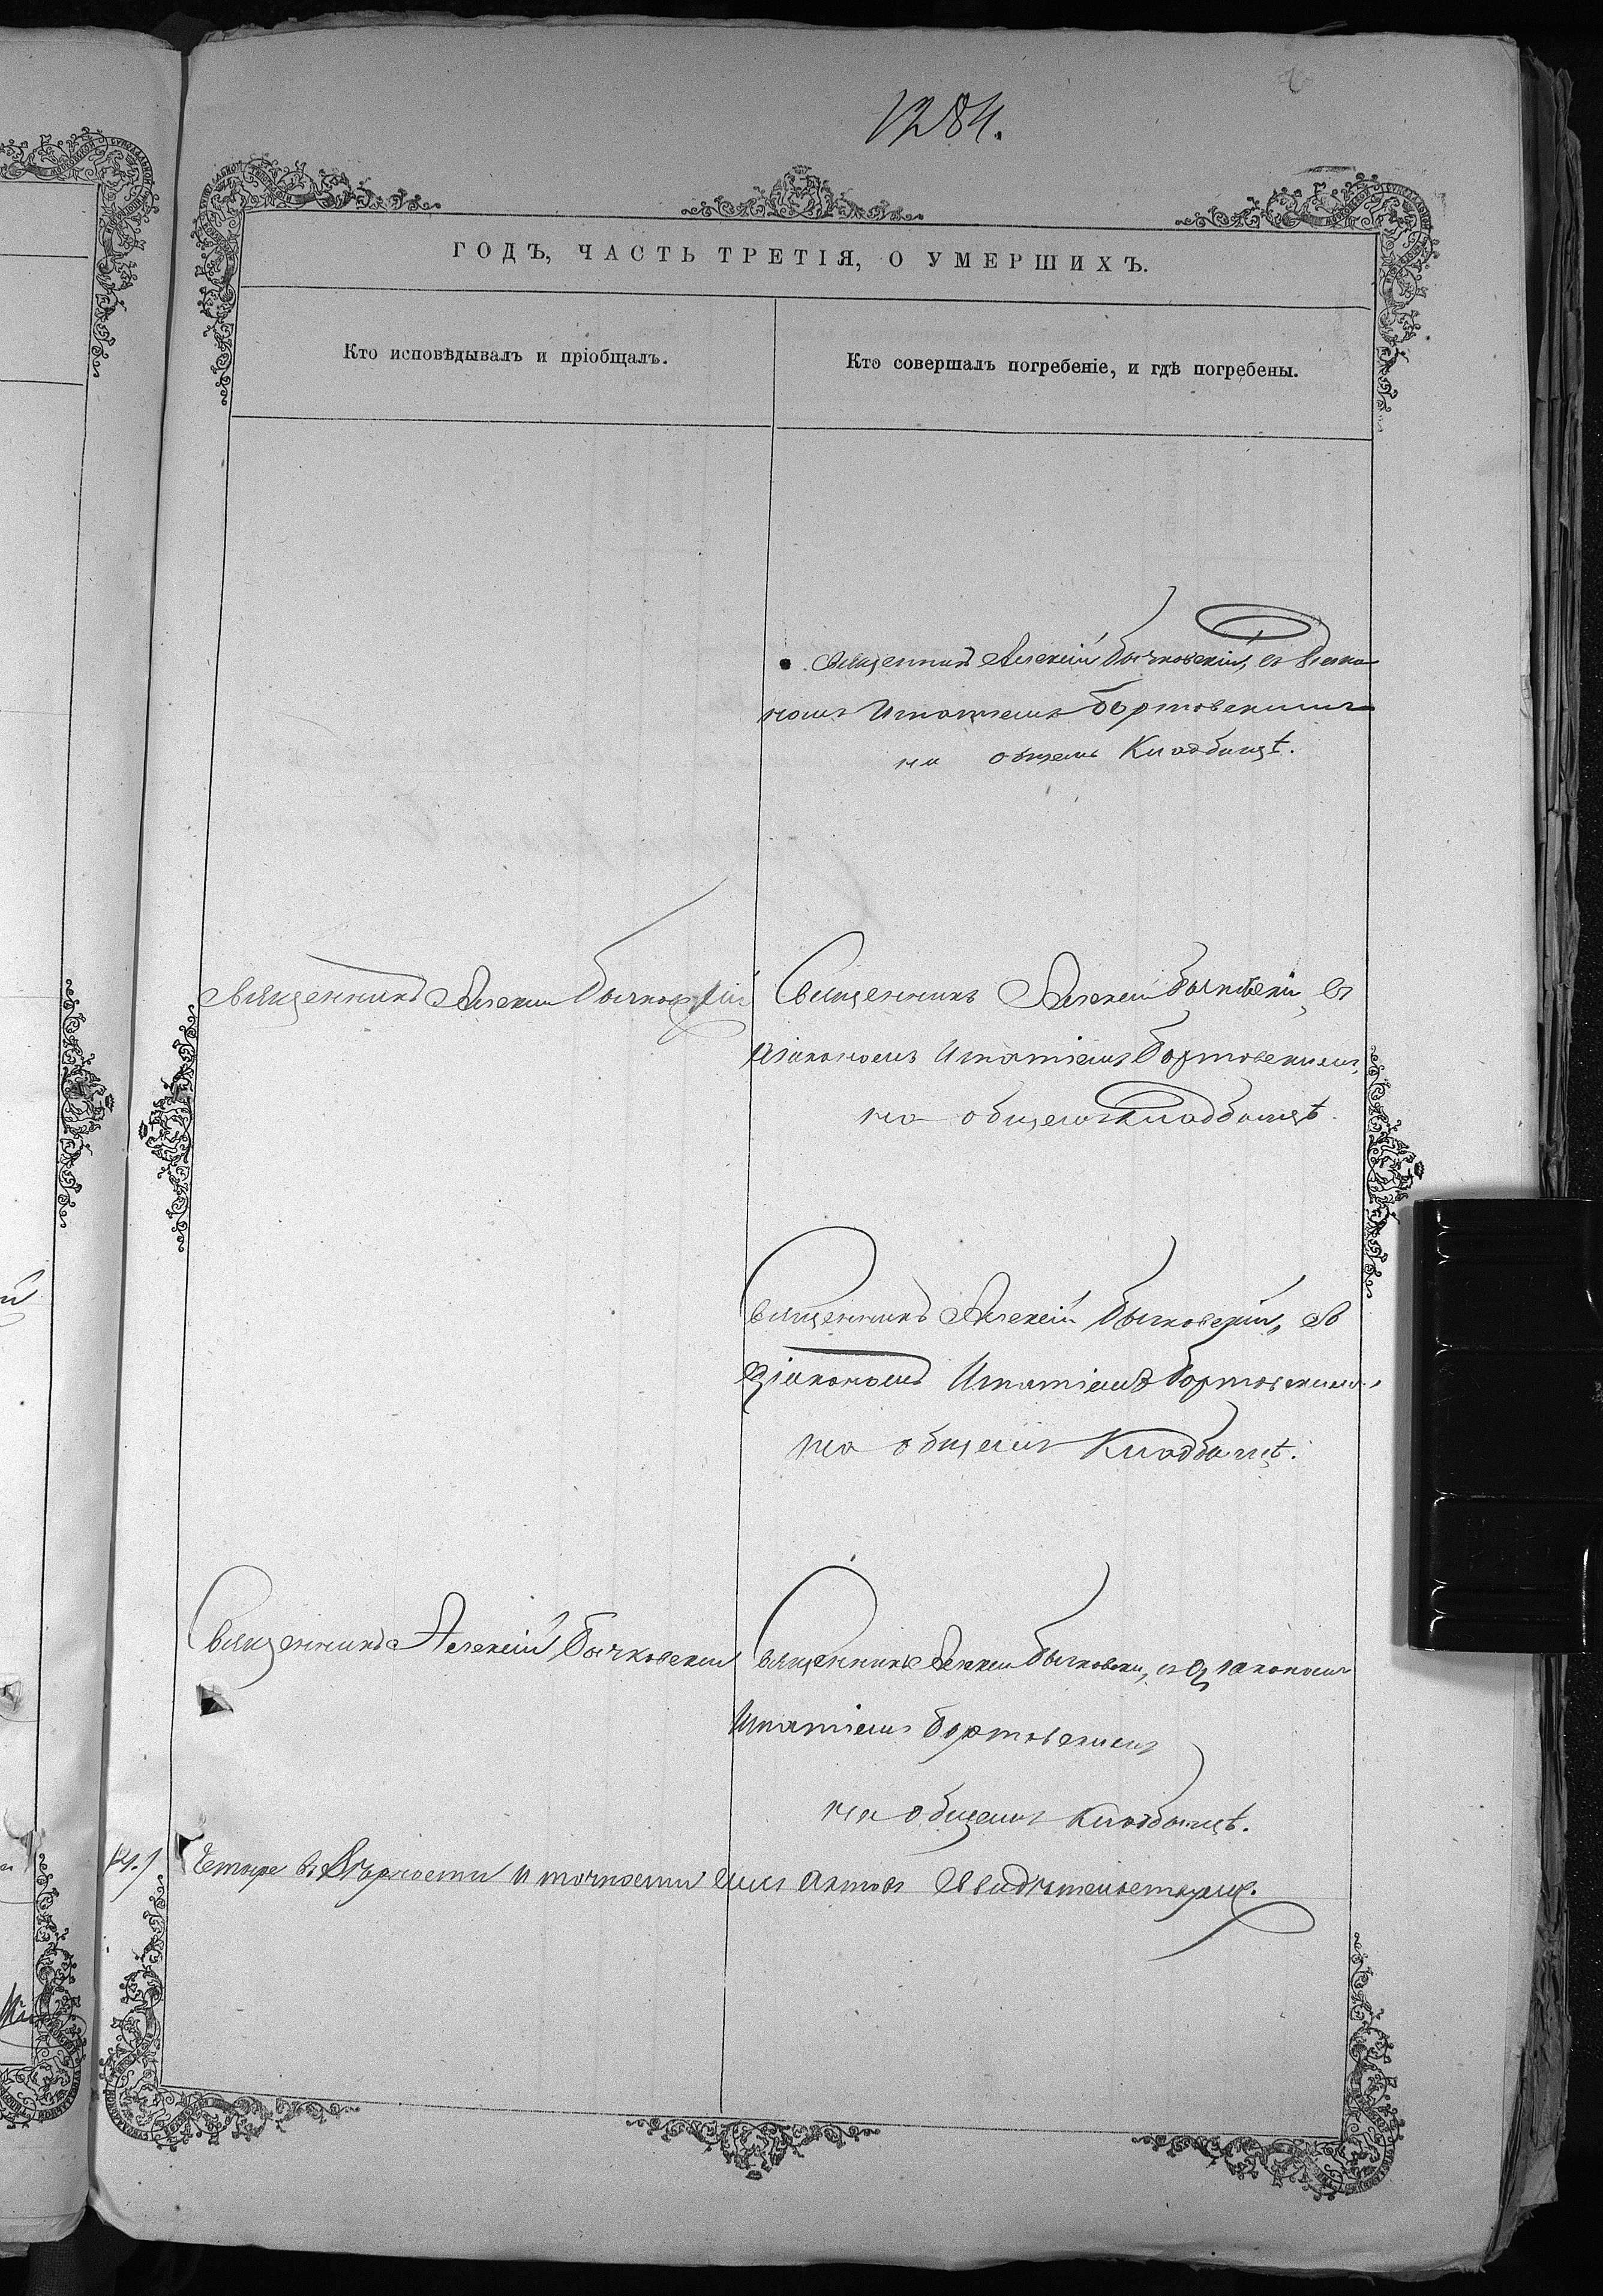 1284.
ГОДЪ, ЧАСТЬ ТРЕТІЯ, О УМЕРШИХЪ.
Кто исповѣдывалъ и пріобщалъ.
Кто совершалъ погребеніе, и гдѣ погребены.
Священникъ Алексій Бычковскій, съ діако-
номъ Игнатіемъ Бортовскимъ
на общемъ Кладбищѣ.
Священникъ Алексій Бычковскій
Священникъ Алексей Бычковскій, съ
діакономъ Игнатіемъ Бортовскимъ,
на общемъ кладбищѣ.
Священникъ Алексій Бычковскій, съ
діакономъ Игнатіемъ Бортовскимъ,
на общемъ Кладбищѣ.
Священникъ Алексій Бычковскій
Священникъ Алексей Бычковскій, съ діакономъ
Игнатіемъ Бортовскимъ
на общемъ Кладбищѣ.
(4.) Четыре въ вѣрности и точности сихъ актовъ свидѣтельствуемъ.